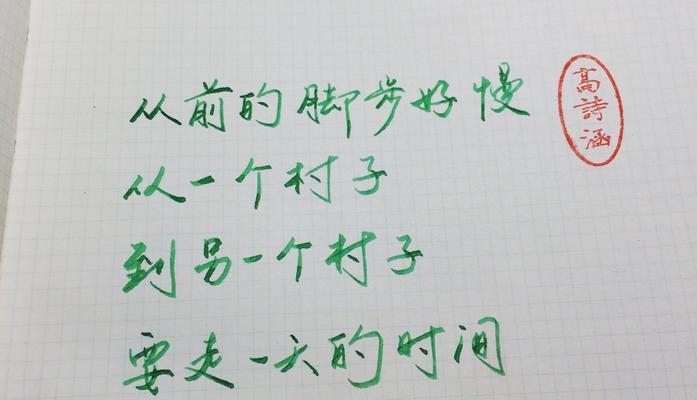 从前的脚步好慢
从一个村子
到另一个村子
要走一天的时间
高詩涵